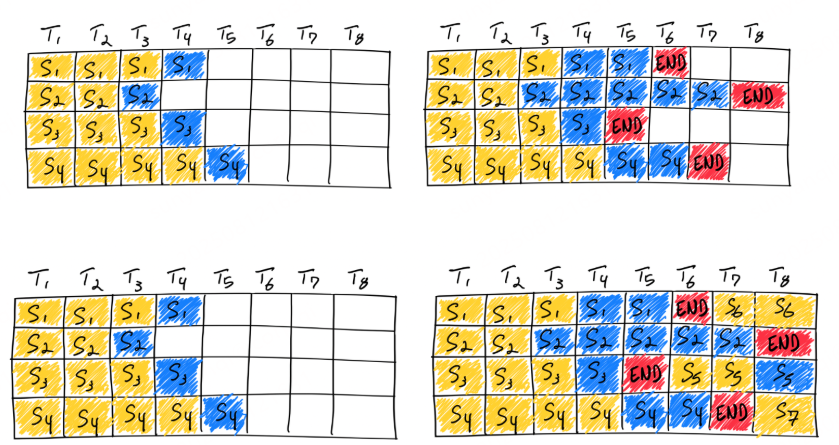 T₁ T₂ T₃ T₄ T₅ T₆ T₇ T₈
S₁ S₁ S₁ S₁
S₂ S₂ S₂
S₃ S₃ S₃ S₃
S₄ S₄ S₄ S₄ S₄
T₁ T₂ T₃ T₄ T₅ T₆ T₇ T₈
S₁ S₁ S₁ S₁ S₁ END
S₂ S₂ S₂ S₂ S₂ S₂ S₂ END
S₃ S₃ S₃ S₃ END
S₄ S₄ S₄ S₄ S₄ S₄ END
T₁ T₂ T₃ T₄ T₅ T₆ T₇ T₈
S₁ S₁ S₁ S₁
S₂ S₂ S₂
S₃ S₃ S₃ S₃
S₄ S₄ S₄ S₄ S₄
T₁ T₂ T₃ T₄ T₅ T₆ T₇ T₈
S₁ S₁ S₁ S₁ S₁ END S₆ S₆
S₂ S₂ S₂ S₂ S₂ S₂ S₂ END
S₃ S₃ S₃ S₃ END S₅ S₅ S₅
S₄ S₄ S₄ S₄ S₄ S₄ END S₇